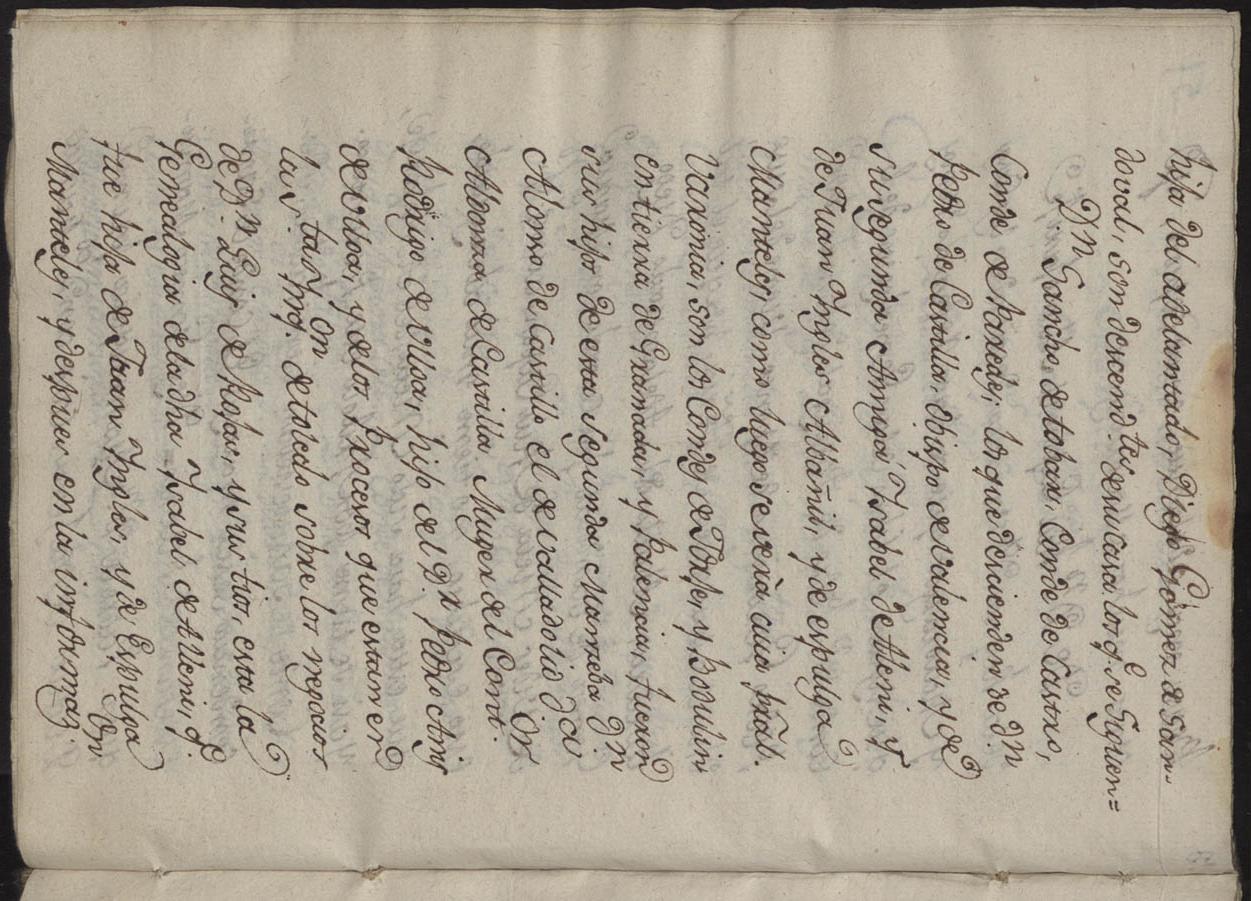 hija del adelantado, Diego Gomez de San-
doval, son descend.tes de su casa. los q.e se siguen =
D.n Sancho, de tobar, Conde de Castro,
Conde de Paredes, los que descienden de D.n
Pedro de Castilla, obispo de valencia, y de
su segunda Amiga Ysabel de Aleni, y
de Juan Yngles Albañil, y de espulga
Mamelez, como luego se verá cuia prāl.
Varonia, son los Condes de y
en tierra de Granada, y Palencia, fueron
sus hijos de esta segunda Manceba D.n
Alonso de Castillo el de valladolid D.a
Aldonza de Castilla Muger del Cont.or
Rodrigo de Ulloa, hijo del D.r Pedro
de Ulloa, y delos Procesos que estan en
las Ynq.on de toledo sobre los negocios
de D.n Luis de Rojas, y sus tios, esta la
Genealogia dela dha Ysabel de Aleni, q.e
fue hija de Juan Ynglès, y de Espulga
Mamelez, y despues en la informaz.on